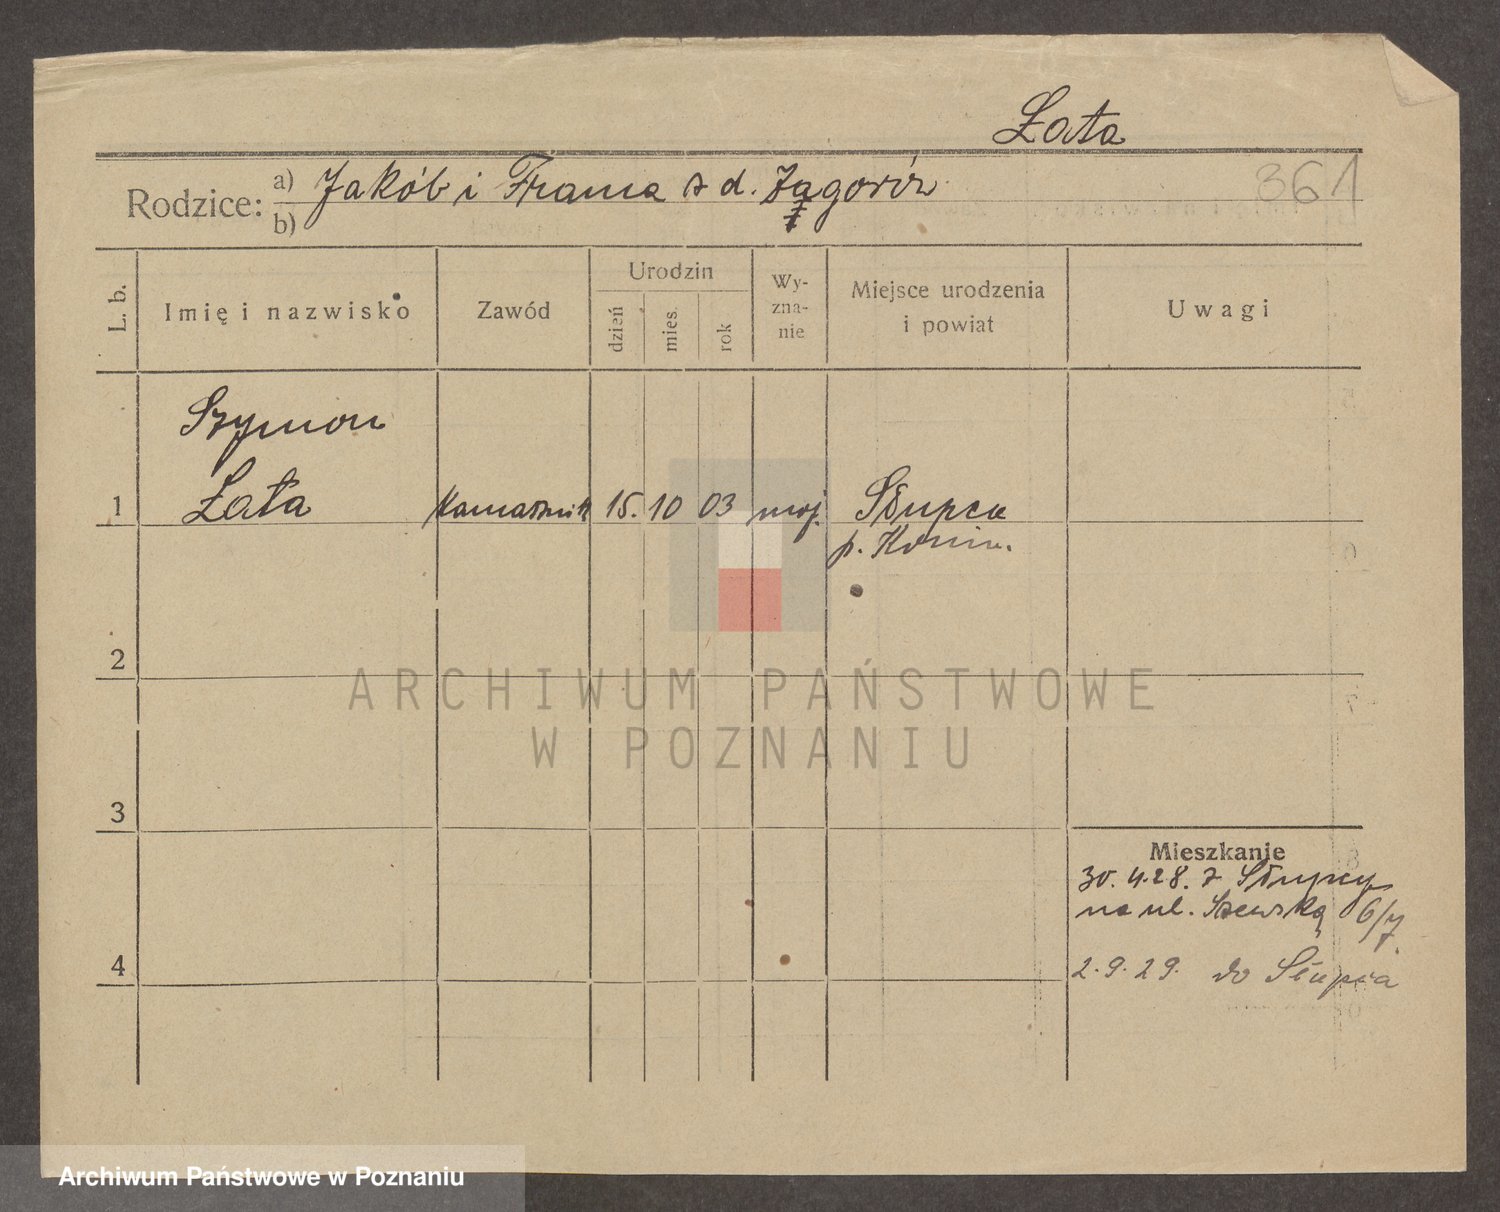 Łata
361
Rodzice: a) Jakób i Frania z d. Zagorów
b)
L. b.
Imię i nazwisko
Zawód
Urodzin
dzień
mies.
rok
Wy-
zna-
nie
Miejsce urodzenia
i powiat
Uwagi
Szymon
1 Łata Kamasznik 15. 10 03 moj. Słupca
p. Konin.
2
ARCHIWUM PAŃSTWOWE
W POZNANIU
3
Mieszkanie
30.4.28. z Słupcy
na ul. Szewską 6/7.
4 2.9.29. do Słupca
Archiwum Państwowe w Poznaniu